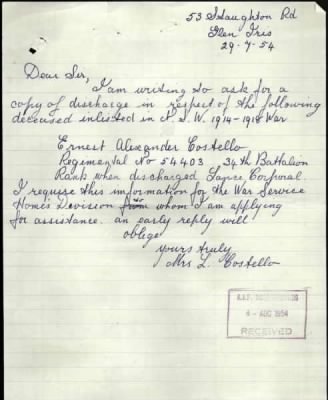 53 Staughton Rd
Glen Iris
29-7-54
Dear Sir,
I am writing to ask for a
copy of discharge in respect of the following
deceased inlisted in N.S.W. 1914-1918 War
Ernest Alexander Costello
Regimental No 54403 34th Battalion
Rank when discharged Lance Corporal
I require this information for the War Service
Homes Division from whom I am applying
for assistance. an early reply will
oblige
yours truly
Mrs L. Costello
4 - AUG 1954
RECEIVED